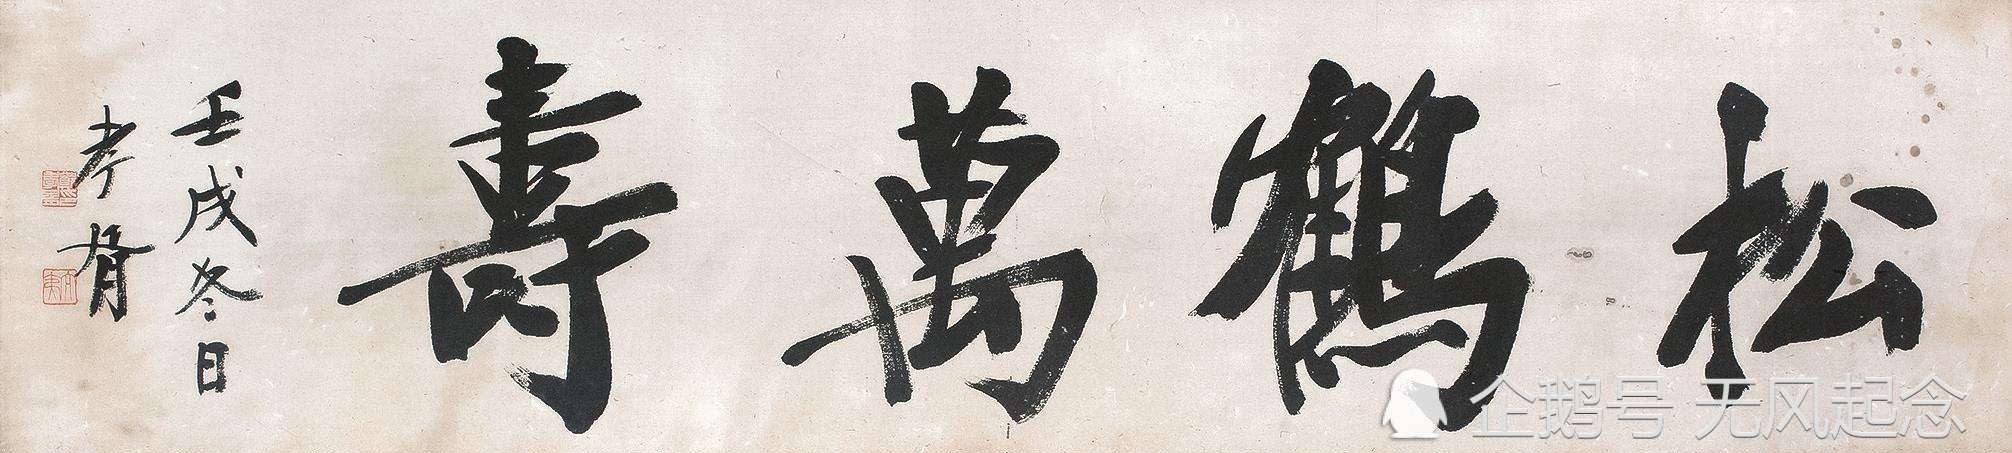 松鶴萬壽
壬戌冬日
孝胥
企鹅号 无风起念